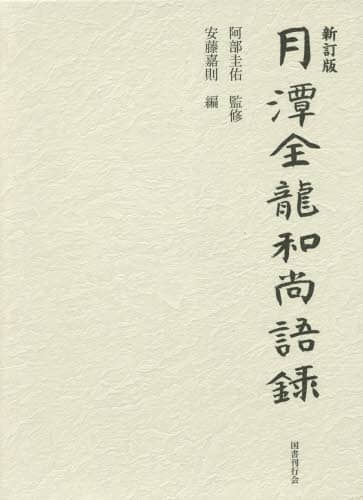 新訂版
月潭全龍和尚語録
阿部圭佑 監修
安藤嘉則 編
国書刊行会